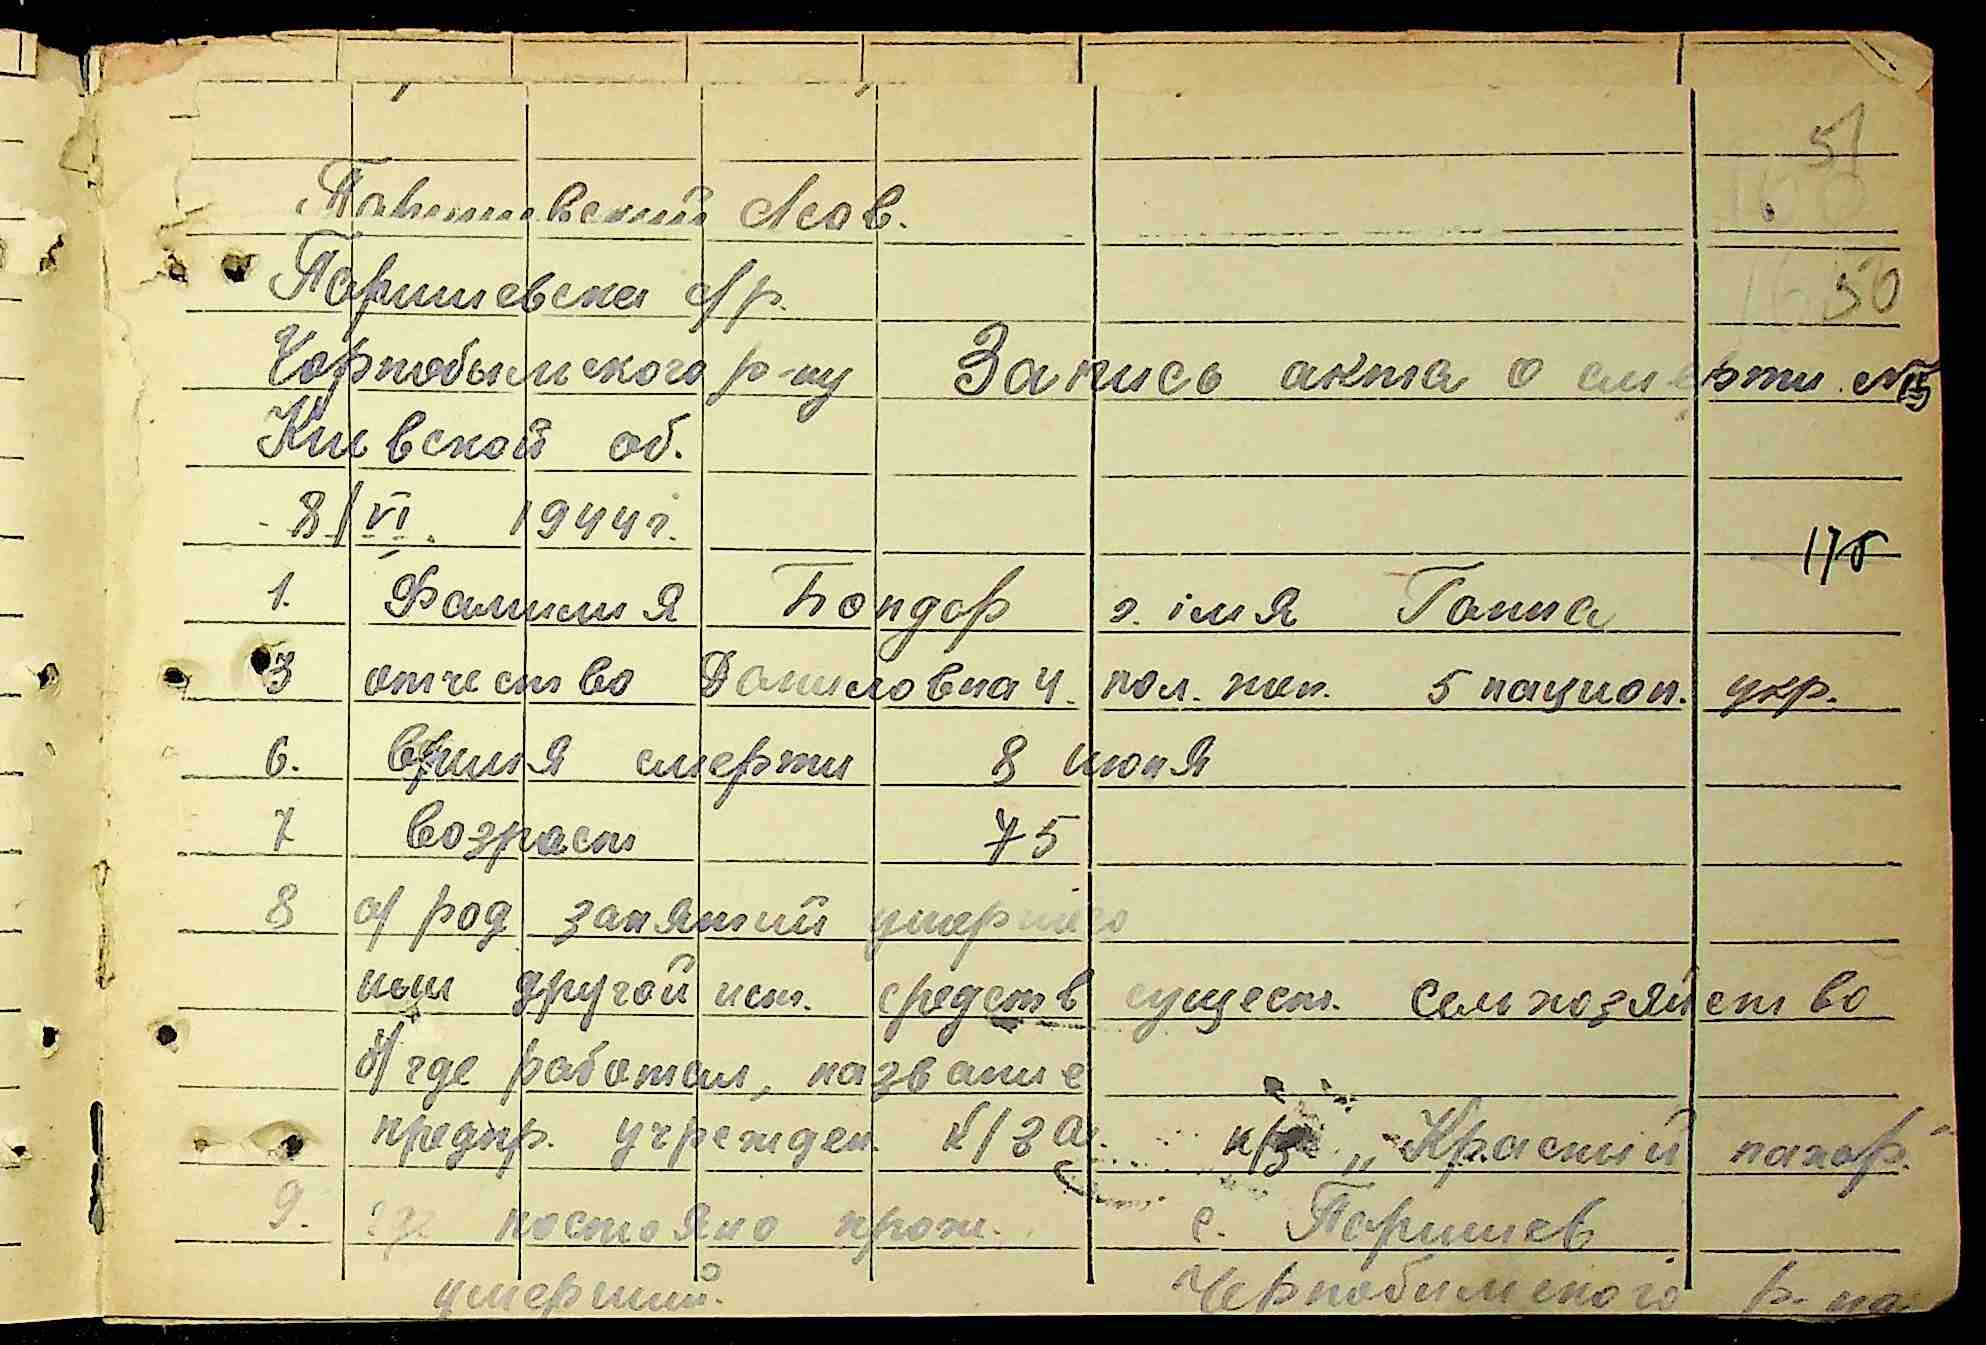 51
Паришевский
50
Паришевска с/р.
Чорнобылského р-ну Запись акта о смерти. №15
Киевской об.
8/VI. 1944 г.
176
1. Фамилия Бондар 2. імя Ганна
3 отчество Даниловна 4. пол. жен. 5 национ. укр.
6. время смерти 8 июня
7 возраст 75
8 а/ род занятий умершего
или другой ист. средств сущест. сельхозяйство
б/ где работал, название
предпр. учрежден. к/за. к/з „Красний пахар"
9. где постояно прож. с. Паришев
умерший. Чернобилского р-на